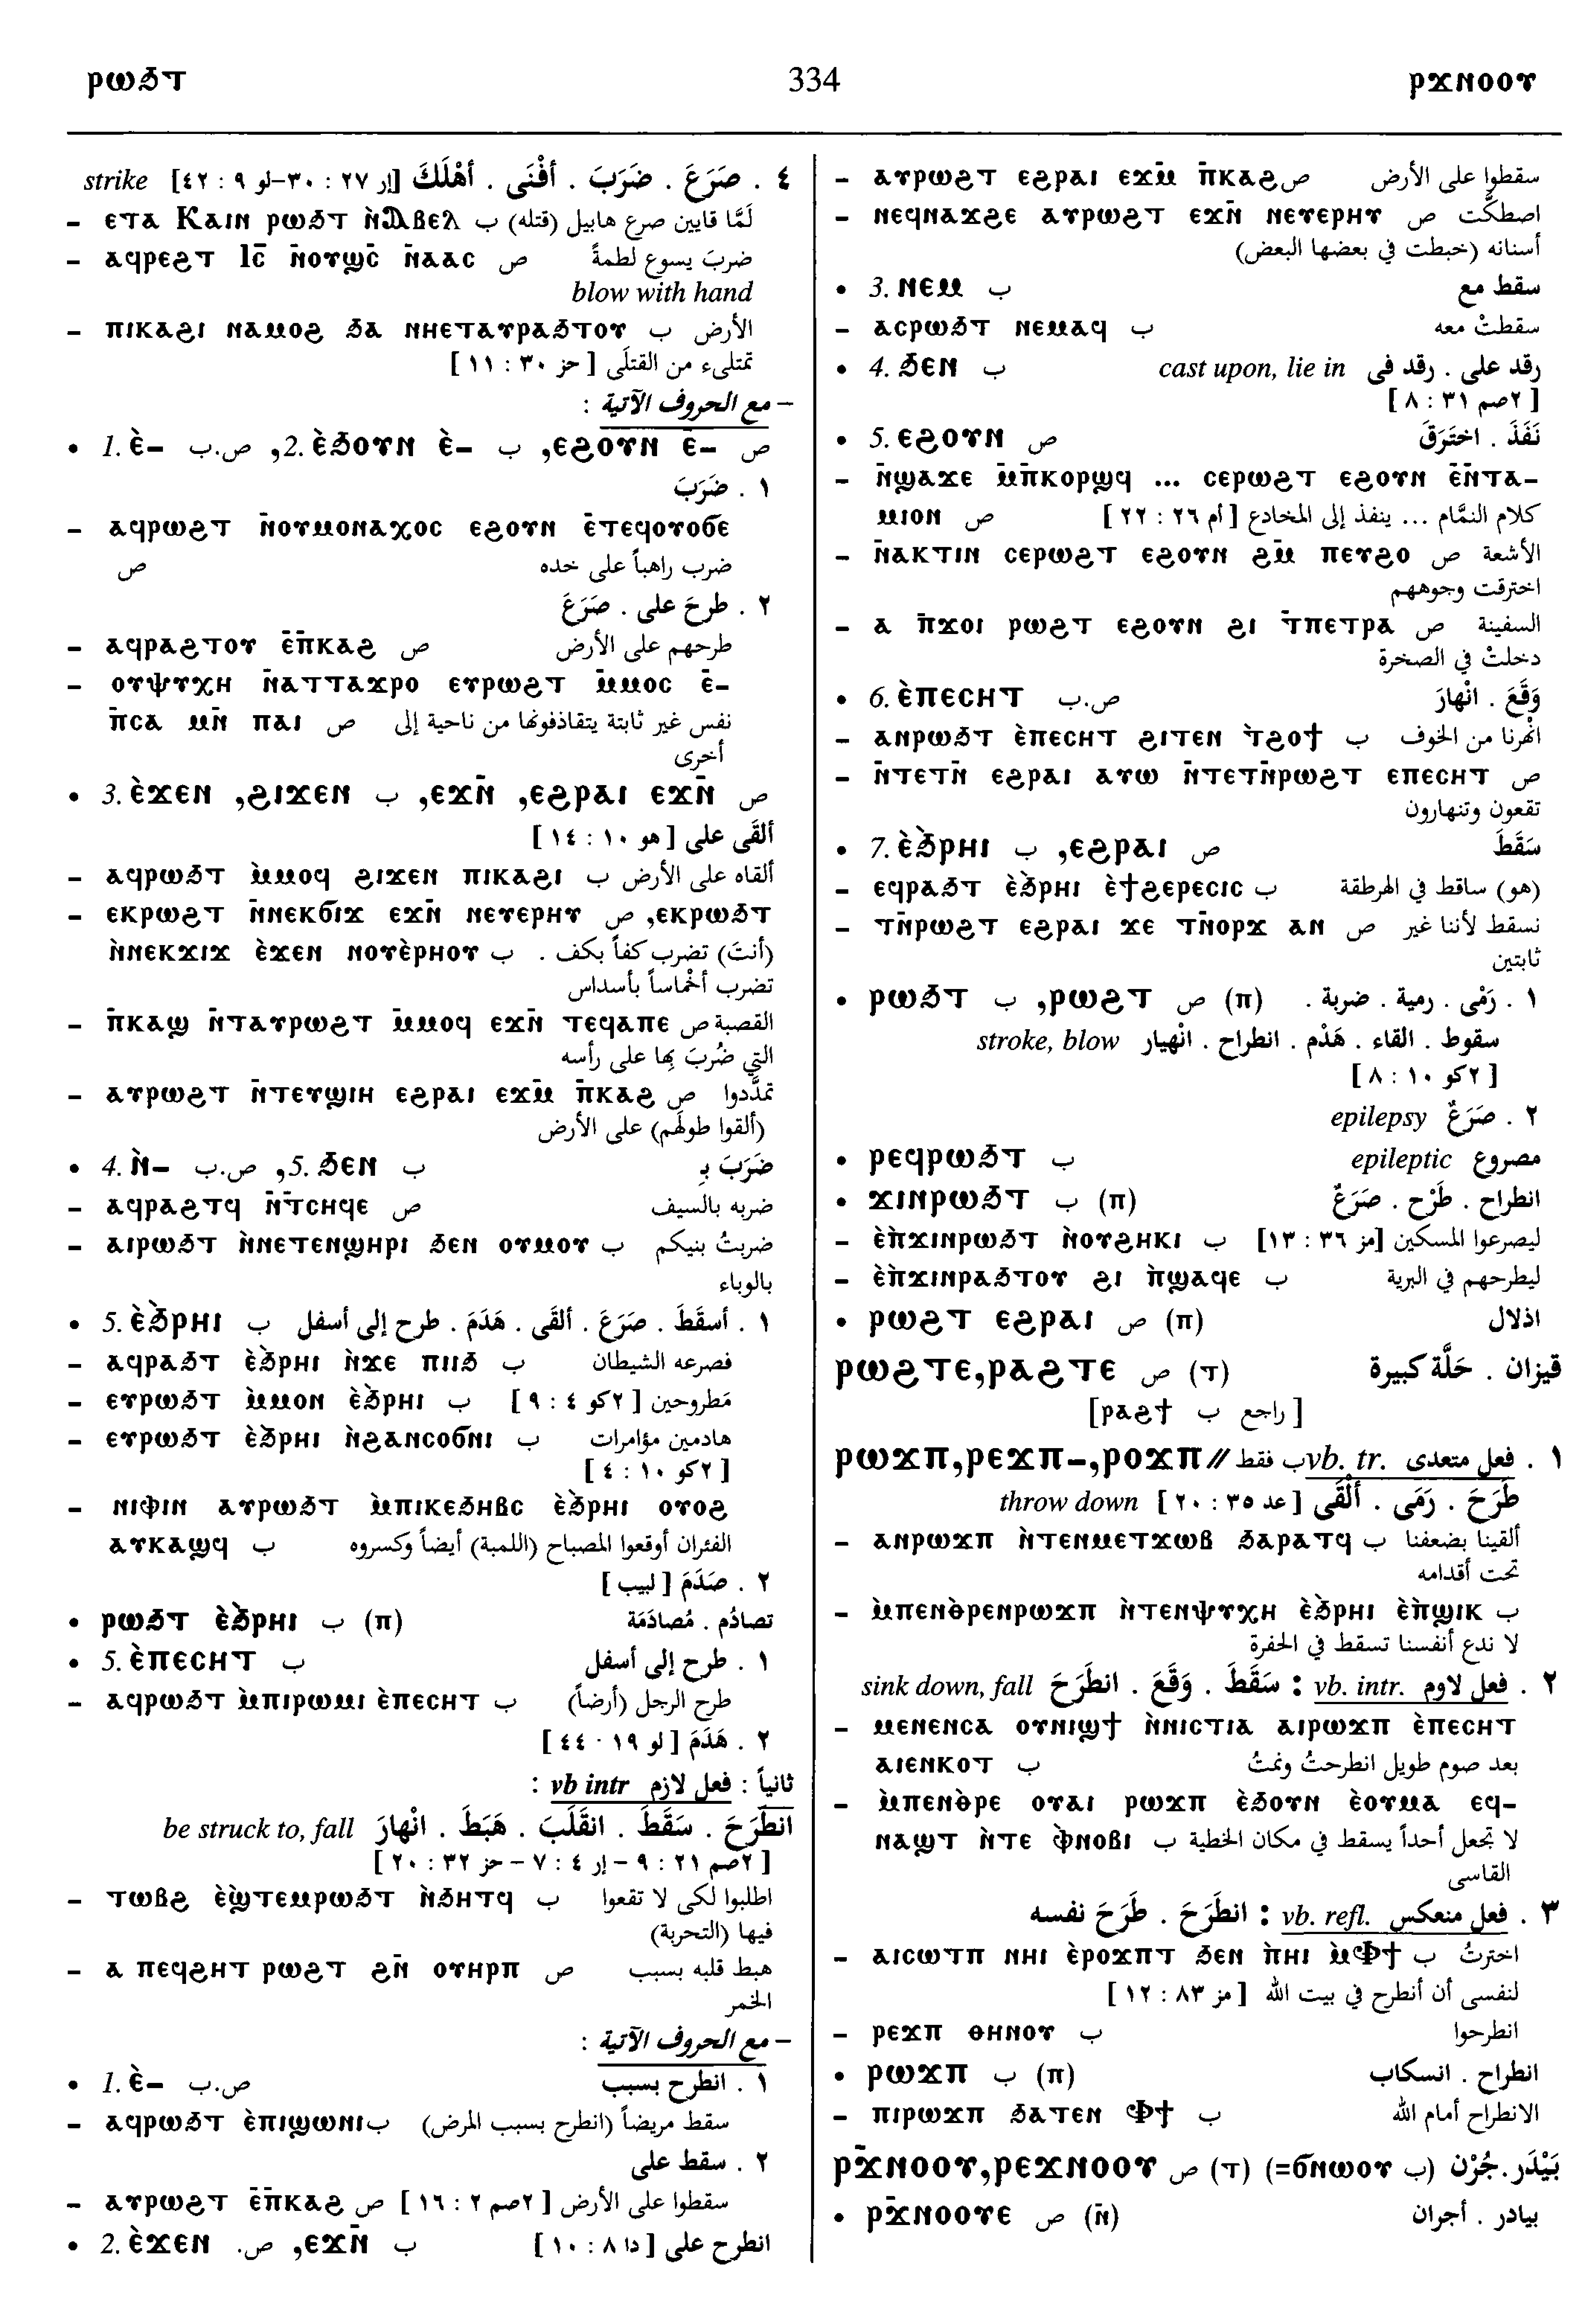 ⲣⲱϧⲧ 334 ⲣϫⲛⲟⲟⲩ
٤ . صَرَعَ . ضَرَبَ . أفْنَى . أهْلَكَ [إر ٢٧ : ٣٠-لو ٩ : ٤٢] strike
– ⲉⲧⲁ Ⲕⲁⲓⲛ ⲣⲱϧⲧ ⲛ̀Ⲁⲃⲉⲗ ب لَمَّا قايين صرع هابيل (قتله)
– ⲁϥⲣⲉϩⲧ ⲓ̅ⲥ̅ ⲛ̄ⲟⲩϣⲥ̄ ⲛ̄ⲁⲁⲥ ص ضربَ يسوع لطمةً
blow with hand
– ⲡⲓⲕⲁϩⲓ ⲛⲁⲙⲟϩ ϧⲁ ⲛⲏⲉⲧⲁⲩⲣⲁϧⲧⲟⲩ ب الأرض
تمتلىء من القتلَى [ حز ٣٠ : ١١ ]
– مع الحروف الآتية :
• 1. ⲉ̀– ص.ب ,2. ⲉ̀ϧⲟⲩⲛ ⲉ̀– ب ,ⲉϩⲟⲩⲛ ⲉ̄– ص
١ . ضَرَبَ
– ⲁϥⲣⲱϩⲧ ⲛ̄ⲟⲩⲙⲟⲛⲁⲭⲟⲥ ⲉϩⲟⲩⲛ ⲉ̄ⲧⲉϥⲟⲩⲟϭⲉ
ص ضرب راهباً على خده
٢ . طرحَ على . صَرَعَ
– ⲁϥⲣⲁϩⲧⲟⲩ ⲉ̄ⲡ̄ⲕⲁϩ ص طرحهم على الأرض
– ⲟⲩⲯⲩⲭⲏ ⲛ̄ⲁⲧⲧⲁϫⲣⲟ ⲉⲩⲣⲱϩⲧ ⲙ̄ⲙⲟⲥ ⲉ̄–
ⲡ̄ⲥⲁ ⲙⲛ̄ ⲡⲁⲓ ص نفس غير ثابتة يتقاذفونها من ناحية إلى
أخرى
• 3. ⲉ̀ϫⲉⲛ ,ϩⲓϫⲉⲛ ب ,ⲉϫⲛ̄ ,ⲉϩⲣⲁⲓ ⲉϫⲛ̄ ص
ألقَى على [ هو ١٠ : ١٤ ]
– ⲁϥⲣⲱϧⲧ ⲙ̀ⲙⲟϥ ϩⲓϫⲉⲛ ⲡⲓⲕⲁϩⲓ ب ألقاه على الأرض
– ⲉⲕⲣⲱϩⲧ ⲛ̄ⲛⲉⲕϭⲓϫ ⲉϫⲛ̄ ⲛⲉⲩⲉⲣⲏⲩ ص ,ⲉⲕⲣⲱϧⲧ
ⲛ̀ⲛⲉⲕϫⲓϫ ⲉ̀ϫⲉⲛ ⲛⲟⲩⲉ̀ⲣⲏⲟⲩ ب (أنتَ) تضرب كفاً بكف .
تضرب أخْماساً بأسداس
– ⲡ̄ⲕⲁϣ ⲛ̄ⲧⲁⲩⲣⲱϩⲧ ⲙ̄ⲙⲟϥ ⲉϫⲛ̄ ⲧⲉϥⲁⲡⲉ ص القصبة
التي ضُربَ بِها على رأسه
– ⲁⲩⲣⲱϩⲧ ⲛ̄ⲧⲉⲩϣⲓⲏ ⲉϩⲣⲁⲓ ⲉϫⲙ̄ ⲡ̄ⲕⲁϩ ص تمدَّدوا
(ألقوا طولَهم) على الأرض
• 4. ⲛ̀– ص.ب ,5. ϧⲉⲛ ب ضَرَبَ بِـ
– ⲁϥⲣⲁϩⲧϥ ⲛ̄ⲧⲥⲏϥⲉ ص ضربه بالسيف
– ⲁⲓⲣⲱϧⲧ ⲛ̀ⲛⲉⲧⲉⲛϣⲏⲣⲓ ϧⲉⲛ ⲟⲩⲙⲟⲩ ب ضربتُ بنيكم
بالوباء
• 5. ⲉ̀ϧⲣⲏⲓ ب ١ . أسقَطَ . صَرَعَ . ألقَى . هَدَمَ . طرح إلى أسفل
– ⲁϥⲣⲁϧⲧ ⲉ̀ϧⲣⲏⲓ ⲛ̀ϫⲉ ⲡⲓⲓϧ ب فصرعه الشيطان
– ⲉⲩⲣⲱϧⲧ ⲙ̀ⲙⲟⲛ ⲉ̀ϧⲣⲏⲓ ب مَطروحين [ ٢كو ٤ : ٩ ]
– ⲉⲩⲣⲱϧⲧ ⲉ̀ϧⲣⲏⲓ ⲛ̀ϩⲁⲛⲥⲟϭⲛⲓ ب هادمين مؤامرات
[ ٢كو ١٠ : ٤ ]
– ⲛⲓⲫⲓⲛ ⲁⲩⲣⲱϧⲧ ⲙ̀ⲡⲓⲕⲉϧⲏⲃⲥ ⲉ̀ϧⲣⲏⲓ ⲟⲩⲟϩ
ⲁⲩⲕⲁϣϥ ب الفئران أوقعوا المصباح (اللمبة) أيضاً وكسروه
٢ . صَدَمَ [ لبيب ]
• ⲣⲱϧⲧ ⲉ̀ϧⲣⲏⲓ ب (ⲡ) تصادُم . مُصادَمَة
• 5. ⲉ̀ⲡⲉⲥⲏⲧ ب ١ . طرح إلى أسفل
– ⲁϥⲣⲱϧⲧ ⲙ̀ⲡⲓⲣⲱⲙⲓ ⲉ̀ⲡⲉⲥⲏⲧ ب طرح الرجل (أرضاً)
٢ . هَدَمَ [ لو ١٩ : ٤٤ ]
ثانياً : فعل لازم vb intr :
انطَرَحَ . سَقَطَ . انقَلَبَ . هَبَطَ . انْهارَ be struck to, fall
[ ٢صم ٢١ : ٩ – إر ٤ : ٧ – حز ٣٢ : ٢٠ ]
– ⲧⲱⲃϩ ⲉ̀ϣ̀ⲧⲉⲙⲣⲱϧⲧ ⲛ̀ϧⲏⲧϥ ب اطلبوا لكى لا تقعوا
فيها (التجربة)
– ⲁ ⲡⲉϥϩⲏⲧ ⲣⲱϩⲧ ϩⲛ̄ ⲟⲩⲏⲣⲡ ص هبط قلبه بسبب
الخمر
– مع الحروف الآتية :
• 1. ⲉ̀– ص.ب ١ . انطرح بسبب
– ⲁϥⲣⲱϧⲧ ⲉ̀ⲡⲓϣⲱⲛⲓ ب سقط مريضاً (انطرح بسبب المرض)
٢ . سقط على
– ⲁⲩⲣⲱϩⲧ ⲉ̄ⲡ̄ⲕⲁϩ ص سقطوا على الأرض [ ٢صم ٢ : ١٦ ]
• 2. ⲉ̀ϫⲉⲛ ص. ,ⲉϫⲛ̄ ب انطرح على [ دا ٨ : ١٠ ]
– ⲁⲩⲣⲱϩⲧ ⲉϩⲣⲁⲓ ⲉϫⲙ̄ ⲡ̄ⲕⲁϩ ص سقطوا على الأرض
– ⲛⲉϥⲛⲁϫϩⲉ ⲁⲩⲣⲱϩⲧ ⲉϫⲛ̄ ⲛⲉⲩⲉⲣⲏⲩ ص اصطكَّت
أسنانه (خبطت في بعضها البعض)
• 3. ⲛⲉⲙ ب سقط مع
– ⲁⲥⲣⲱϧⲧ ⲛⲉⲙⲁϥ ب سقطتْ معه
• 4. ϧⲉⲛ ب رقد على . رقد فى cast upon, lie in
[ ٢صم ٣١ : ٨ ]
• 5. ⲉϩⲟⲩⲛ ص نَفَذَ . اختَرَقَ
– ⲛ̄ϣⲁϫⲉ ⲙ̄ⲡ̄ⲕⲟⲣϣϥ ... ⲥⲉⲣⲱϩⲧ ⲉϩⲟⲩⲛ ⲉ̄ⲛ̄ⲧⲁ–
ⲙⲓⲟⲛ ص كلام النمَّام ... ينفذ إلى المخادع [ أم ٢٦ : ٢٢ ]
– ⲛ̄ⲁⲕⲧⲓⲛ ⲥⲉⲣⲱϩⲧ ⲉϩⲟⲩⲛ ϩⲙ̄ ⲡⲉⲩϩⲟ ص الأشعة
اخترقت وجوههم
– ⲁ ⲡ̄ϫⲟⲓ ⲣⲱϩⲧ ⲉϩⲟⲩⲛ ϩⲓ ⲧ̄ⲡⲉⲧⲣⲁ ص السفينة
دخلتْ في الصخرة
• 6. ⲉ̀ⲡⲉⲥⲏⲧ ص.ب وَقَعَ . انْهارَ
– ⲁⲛⲣⲱϧⲧ ⲉ̀ⲡⲉⲥⲏⲧ ϩⲓⲧⲉⲛ ⲧ̀ϩⲟϯ ب انْهرنا من الخوف
– ⲛ̄ⲧⲉⲧⲛ̄ ⲉϩⲣⲁⲓ ⲁⲩⲱ ⲛ̄ⲧⲉⲧⲛ̄ⲣⲱϩⲧ ⲉⲡⲉⲥⲏⲧ ص
تقعون وتنهارون
• 7. ⲉ̀ϧⲣⲏⲓ ب ,ⲉϩⲣⲁⲓ ص سَقَطَ
– ⲉϥⲣⲁϧⲧ ⲉ̀ϧⲣⲏⲓ ⲉ̀ϯϩⲉⲣⲉⲥⲓⲥ ب (هو) ساقط في الهرطقة
– ⲧⲛ̄ⲣⲱϩⲧ ⲉϩⲣⲁⲓ ϫⲉ ⲧⲛ̄ⲟⲣϫ ⲁⲛ ص نسقط لأننا غير
ثابتين
• ⲣⲱϧⲧ ب ,ⲣⲱϩⲧ ص (ⲡ) ١ . رَمْى . رمية . ضربة .
سقوط . القاء . هَدْم . انطراح . انْهيار stroke, blow
[ ٢كو ١٠ : ٨ ]
٢ . صَرَعٌ epilepsy
• ⲣⲉϥⲣⲱϧⲧ ب مصروع epileptic
• ϫⲓⲛⲣⲱϧⲧ ب (ⲡ) انطراح . طَرْح . صَرَعٌ
– ⲉ̀ⲡ̀ϫⲓⲛⲣⲱϧⲧ ⲛ̀ⲟⲩϩⲏⲕⲓ ب ليصرعوا المسكين [مز ٣٦ : ١٣]
– ⲉ̀ⲡ̀ϫⲓⲛⲣⲁϧⲧⲟⲩ ϩⲓ ⲡ̀ϣⲁϥⲉ ب ليطرحهم في البرية
• ⲣⲱϩⲧ ⲉϩⲣⲁⲓ ص (ⲡ) اذلال
ⲣⲱϩⲧⲉ,ⲣⲁϩⲧⲉ ص (ⲧ) قيزان . حَلَّة كبيرة
[ راجع ب ⲣⲁϩϯ]
ⲣⲱϫⲡ,ⲣⲉϫⲡ–,ⲣⲟϫⲡ// ب فقط ١ . فعل متعدى vb. tr.
طَرَحَ . رَمَى . ألْقَى [ عد ٣٥ : ٢٠ ] throw down
– ⲁⲛⲣⲱϫⲡ ⲛ̀ⲧⲉⲛⲙⲉⲧϫⲱⲃ ϧⲁⲣⲁⲧϥ ب ألقينا بضعفنا
تحت أقدامه
– ⲙ̀ⲡⲉⲛⲑⲣⲉⲛⲣⲱϫⲡ ⲛ̀ⲧⲉⲛⲯⲩⲭⲏ ⲉ̀ϧⲣⲏⲓ ⲉ̀ⲡ̀ϣⲓⲕ ب
لا ندع أنفسنا تسقط في الحفرة
٢ . فعل لاوم vb. intr. : سَقَطَ . وَقَعَ . انطَرَحَ sink down, fall
– ⲙⲉⲛⲉⲛⲥⲁ ⲟⲩⲛⲓϣϯ ⲛ̀ⲛⲓⲥⲧⲓⲁ ⲁⲓⲣⲱϫⲡ ⲉ̀ⲡⲉⲥⲏⲧ
ⲁⲓⲉⲛⲕⲟⲧ ب بعد صوم طويل انطرحتُ ونمتُ
– ⲙ̀ⲡⲉⲛⲑⲣⲉ ⲟⲩⲁⲓ ⲣⲱϫⲡ ⲉ̀ϧⲟⲩⲛ ⲉ̀ⲟⲩⲙⲁ ⲉϥ–
ⲛⲁϣⲧ ⲛ̀ⲧⲉ ⲫ̀ⲛⲟⲃⲓ ب لا تجعل أحداً يسقط في مكان الخطية
القاسى
٣ . فعل منعكس vb. refl. : انطَرَحَ . طَرَحَ نفسه
– ⲁⲓⲥⲱⲧⲡ ⲛⲏⲓ ⲉ̀ⲣⲟϫⲡⲧ ϧⲉⲛ ⲡ̀ⲏⲓ ⲙ̀Ⲫϯ ب اخترتُ
لنفسى أن أنطرح في بيت الله [ مز ٨٣ : ١٢ ]
– ⲣⲉϫⲡ ⲑⲏⲛⲟⲩ ب انطرحوا
• ⲣⲱϫⲡ ب (ⲡ) انطراح . انسكاب
– ⲡⲓⲣⲱϫⲡ ϧⲁⲧⲉⲛ Ⲫϯ ب الانطراح أمام الله
ⲣϫ̄ⲛⲟⲟⲩ,ⲣⲉϫⲛⲟⲟⲩ ص (ⲧ) (=ϭⲛⲱⲟⲩ ب) بَيْدَر.جُرْن
• ⲣϫ̄ⲛⲟⲟⲩⲉ ص (ⲛ̄) بيادر . أجران